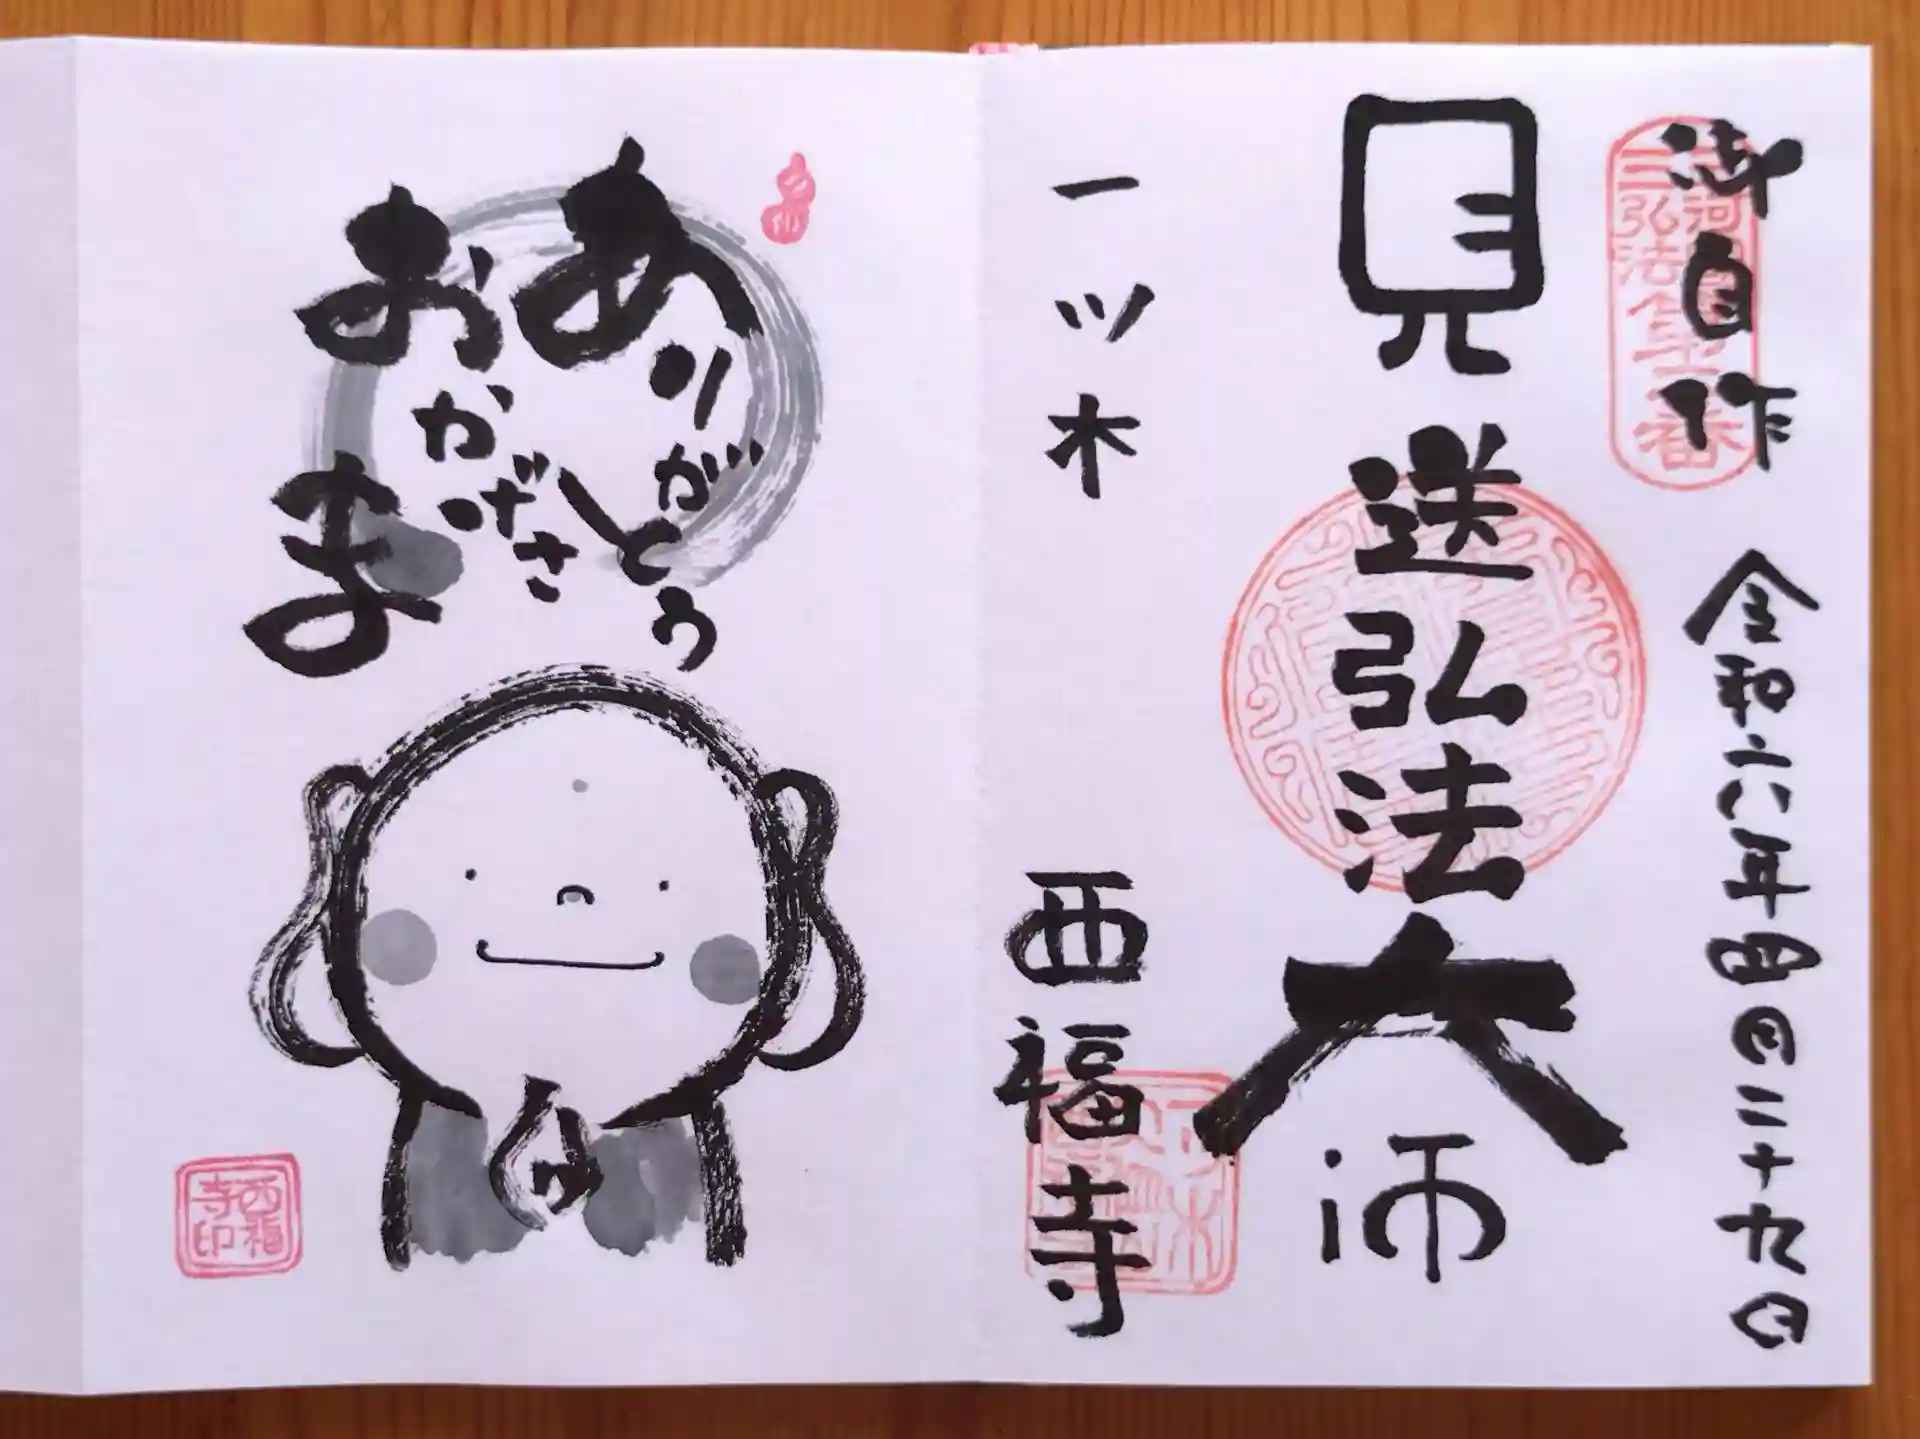 御自作
令和六年四月二十九日
三河
三弘法第二番
見送弘法大師
一ツ木
西福寺
ありがとう
おかげさま
西福
寺印